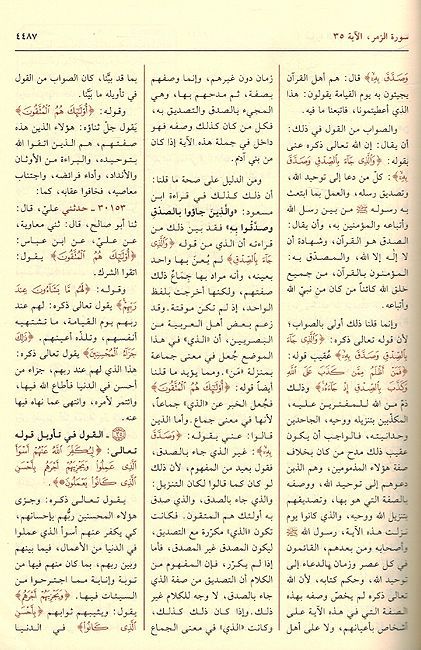 سورة الزمر، الآية ٣٥
٤٤٨٧
وَصَدَّقَ بِهِ﴾ قال: هم أهل القرآن
يجيئون به يوم القيامة يقولون: هذا
الذي أعطيتمونا، فاتبعنا ما فيه.
والصواب من القول في ذلك:
أن يقال: إن الله تعالى ذكره عنى
بقوله: ﴿وَالَّذِي جَاءَ بِالصِّدْقِ وَصَدَّقَ
بِهِ﴾: كلّ من دعا إلى توحيد الله،
وتصديق رسله، والعمل بما ابتعث
به رسوله ﷺ من بين رسل الله
وأتباعه والمؤمنين به، وأن يقال:
الصدق هو القرآن، وشهادة أن
لا إله إلا الله، والمصدّق به:
المؤمنون بالقرآن، من جميع
خلق الله كائناً من كان من نبيّ الله
وأتباعه.
وإنما قلنا ذلك أولى بالصواب؛
لأن قوله تعالى ذكره: ﴿وَالَّذِي جَاءَ
بِالصِّدْقِ وَصَدَّقَ بِهِ﴾ عُقيب قوله:
﴿فَمَنْ أَظْلَمُ مِمَّن كَذَبَ عَلَى اللَّهِ
وَكَذَّبَ بِالصِّدْقِ إِذْ جَاءَهُ﴾ وذلك
ذمّ من الله للمفترين عليه،
المكذّبين بتنزيله ووحيه، الجاحدين
وحدانيته، فالواجب أن يكون
عقيب ذلك مدح من كان بخلاف
صفة هؤلاء المذمومين، وهم الذين
دعوهم إلى توحيد الله، ووصفه
بالصفة التي هو بها، وتصديقهم
بتنزيل الله ووحيه، والذي كانوا يوم
نزلت هذه الآية، رسول الله ﷺ
وأصحابه ومن بعدهم، القائمون
في كل عصر وزمان بالدعاء إلى
توحيد الله، وحكم كتابه، لأن الله
تعالى ذكره لم يخصّ وصفه بهذه
الصفة التي في هذه الآية على
أشخاص بأعيانهم، ولا على أهل
زمان دون غيرهم، وإنما وصفهم
بصفة، ثم مدحهم بها، وهي
المجيء بالصدق والتصديق به،
فكل من كان كذلك وصفه فهو
داخل في جملة هذه الآية إذا كان
من بني آدم.
ومن الدليل على صحة ما قلنا:
أن ذلك كذلك في قراءة ابن
مسعود: «والَّذِينَ جاؤُوا بالصّدْقِ
وصدَّقُوا بِهِ» فقد بين ذلك من
قراءته أن الذي من قوله ﴿وَالَّذِي
جَاءَ بِالصِّدْقِ﴾ لم يُعنَ بها واحد
بعينه، وأنه مراد بها جِماعٌ ذلك
صفتهم، ولكنها أخرجت بلفظ
الواحد، إذ لم تكن موقتة. وقد
زعم بعض أهل العربية من
البصريين، أن «الذي» في هذا
الموضع جُعل في معنى جماعة
بمنزلة «مَن». ومما يؤيد ما قلنا
أيضاً قوله: ﴿أُوْلَئِكَ هُمُ الْمُتَّقُونَ﴾
فجُعل الخبر عن «الذي» جماعاً،
لأنها في معنى جماع. وأما الذين
قالوا: عني بقوله: ﴿وَصَدَّقَ
بِهِ﴾: غير الذي جاء بالصدق،
فقول بعيد من المفهوم، لأن ذلك
لو كان كما قالوا لكان التنزيل:
والذي جاء بالصدق، والذي صدق
به أولئك هم المتقون. فكانت
تكون «الذي» مكرّرة مع التصديق،
ليكون المصدق غير المصدق، فأما
إذا لم يكرّر، فإن المفهوم من
الكلام أن التصديق من صفة الذي
جاء بالصدق، لا وجه للكلام غير
ذلك. وإذا كان ذلك كذلك،
وكانت «الذي» في معنى الجماع
بما قد بيّنا، كان الصواب من القول
في تأويله ما بيّنا.
وقوله: ﴿أُوْلَئِكَ هُمُ الْمُتَّقُونَ﴾
يقول جلّ ثناؤه: هؤلاء الذين هذه
صفتهم، هم الذين اتقوا الله
بتوحيده، والبراءة من الأوثان
والأنداد، وأداء فرائضه، واجتناب
معاصيه، فخافوا عقابه، كما:
٣٠١٥٣ ـ حدثني عليّ، قال:
ثنا أبو صالح، قال: ثني معاوية،
عن عليّ، عن ابن عباس:
﴿أُوْلَئِكَ هُمُ الْمُتَّقُونَ﴾ يقول:
اتقوا الشرك.
وقوله: ﴿لَهُم مَّا يَشَاءُونَ عِندَ
رَبِّهِمْ﴾ يقول تعالى ذكره: لهم عند
ربهم يوم القيامة، ما تشتهيه
أنفسهم، وتلذّه أعينهم. ﴿ذَلِكَ
جَزَاءُ الْمُحْسِنِينَ﴾ يقول تعالى ذكره:
هذا الذي لهم عند ربهم، جزاء من
أحسن في الدنيا فأطاع الله فيها،
وائتمر لأمره، وانتهى عما نهاه فيها
عنه.
ـ القول في تأويل قوله
تعالى: ﴿لِيُكَفِّرَ اللَّهُ عَنْهُمْ أَسْوَأَ
الَّذِي عَمِلُوا وَيَجْزِيَهُمْ أَجْرَهُم بِأَحْسَنِ
الَّذِي كَانُوا يَعْمَلُونَ﴾.
يقول تعالى ذكره: وجزى
هؤلاء المحسنين ربُّهم بإحسانهم،
كي يكفر عنهم أسوأ الذي عملوا
في الدنيا من الأعمال، فيما بينهم
وبين ربهم، بما كان منهم فيها من
توبة وإنابة مما اجترحوا من
السيئات فيها. ﴿وَيَجْزِيَهُمْ أَجْرَهُم﴾
يقول: ويثيبهم ثوابهم ﴿بِأَحْسَنِ
الَّذِي كَانُوا﴾ في الدنيا